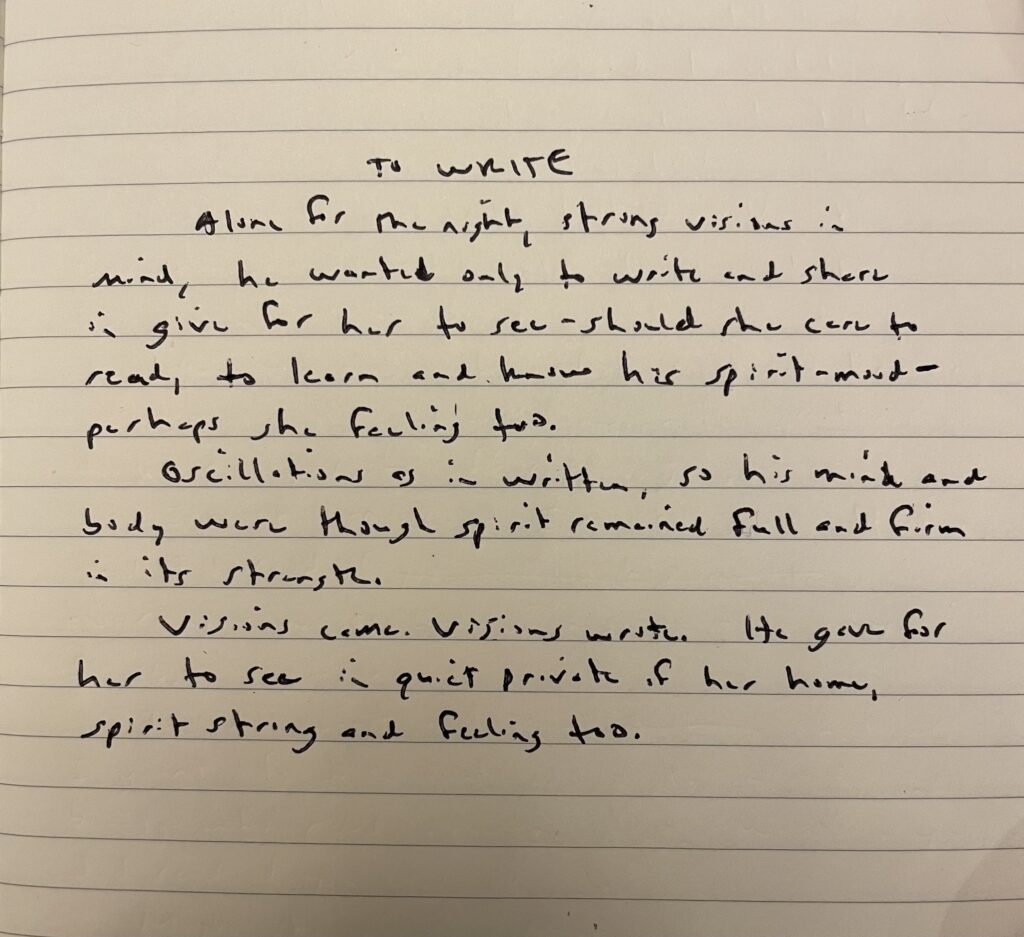 TO WRITE
Alone for the night, strong visions in
mind, he wanted only to write and share
in give for her to see - should she care to
read, to learn and know his spirit-mood -
perhaps she feeling too.
Oscillations as in written, so his mind and
body were though spirit remained full and firm
in its strength.
Visions came. Visions wrote. He gave for
her to see in quiet private of her home,
spirit strong and feeling too.